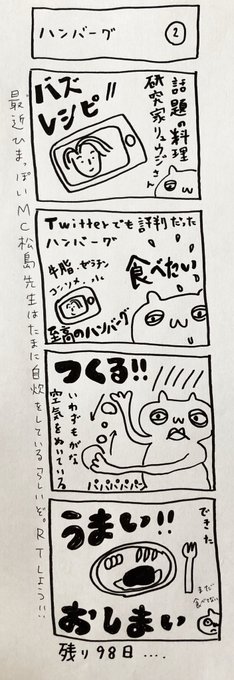 ハンバーグ
2
話題の料理
研究家リュウジさん
バズ
レシピ!!
Twitterでも評判だった
ハンバーグ
牛脂 ゼラチン
コンソメ 氷
食べたい
至高のハンバーグ
つくる!!
いわずもがな
空気をぬいている
パパパパパ
できた
うまい!!
まだ
食べてない
おしまい
残り98日....
最近ひまっぽいMC松島先生はたまに自炊をしているらしいぞ。RTしよう!!